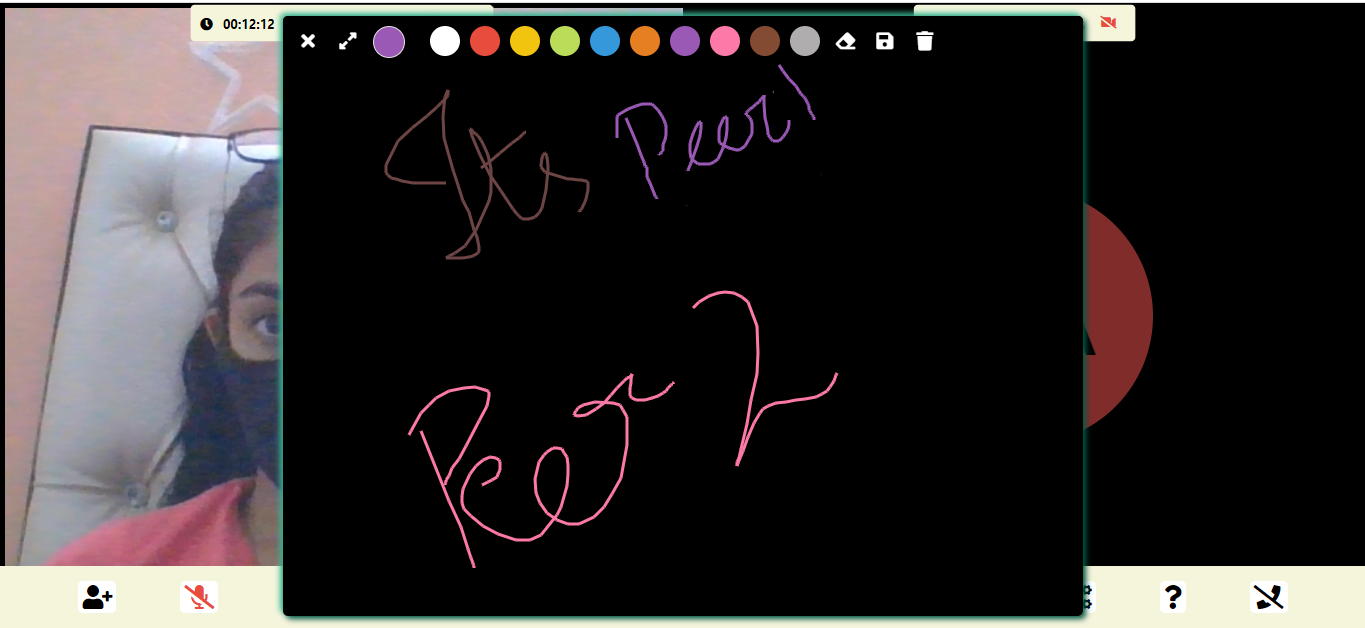 00:12:12
Its Peer 1
Peer 2